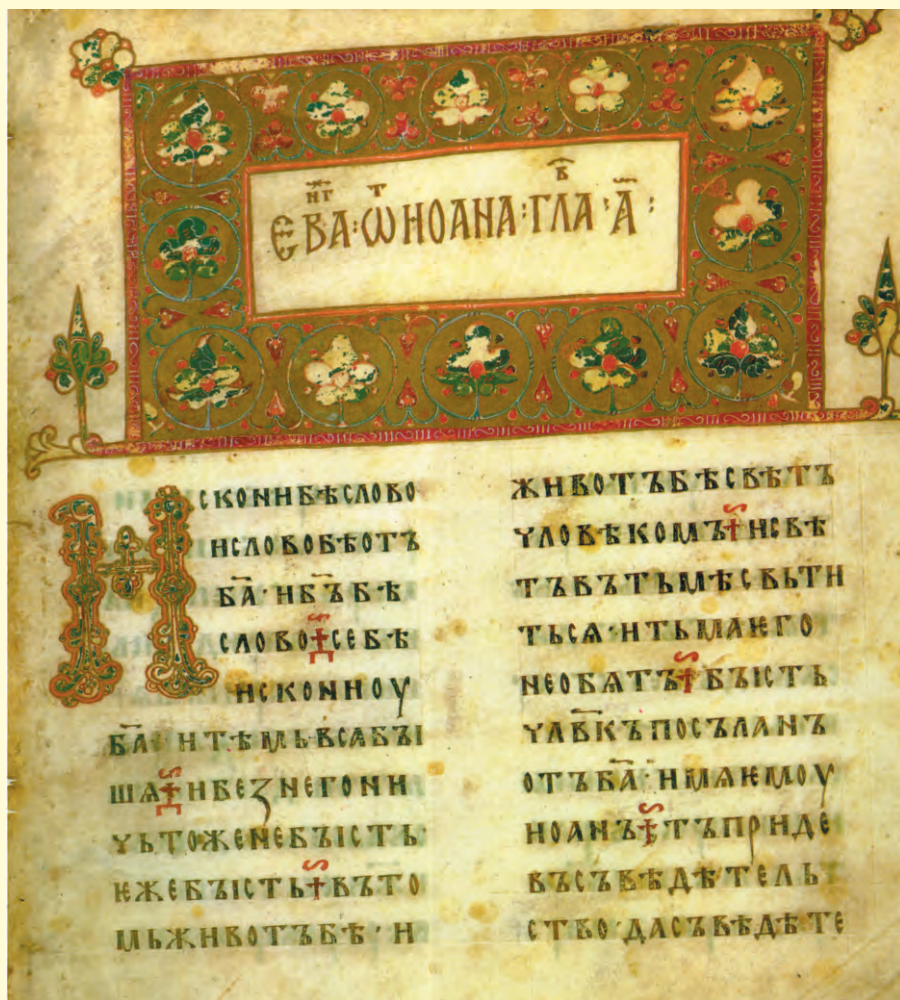 ЕВА҃НГ·Ѿ ИОАНА·ГЛАВ·А҃:
ИСКОНИБѢСЛОВО
ИСЛОВОБѢОТЪ
БА҃·ИБ҃ЪБѢ
СЛОВО СЕБѢ
ИСКОНИОУ
БА҃ ИТѢМЬВСѦБЪІ
ШѦ ИБЕꙁНЕГОНИ
ЧЬТОЖЕНЕБЪІСТЬ·
ѤЖЕБЪІСТЬ ВЪТО
МЬЖИВОТЪБѢ·И
ЖИВОТЪБѢСВѢТЪ
ЧЛОВѢКОМЪ ИСВѢ
ТЪВЪТЬМѢСВЬТИ
ТЬСѦ·ИТЬМАѤГО
НЕОБѦТЪ БЪІСТЬ
ЧЛВ҃КЪПОСЪЛАНЪ
ОТЪБА҃·ИМѦѤМОУ
ИОАНЪ ТЪПРИДЕ
ВЪСЪВѢДѢТЕЛЬ
СТВО·ДАСЪВѢДѢТЕ